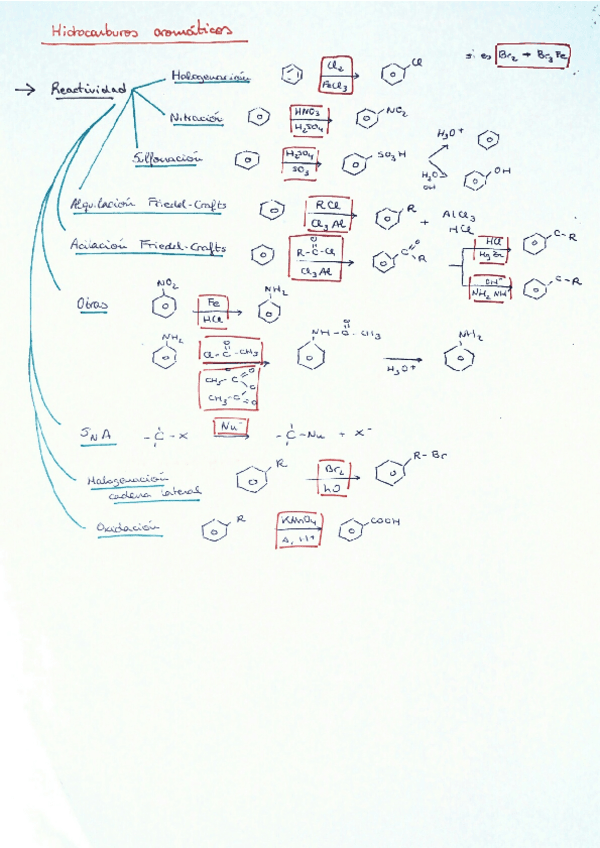 Hidrocarburos aromáticos
si es Br2 → Br3Fe
→ Reactividad
Halogenación
Cl2
FeCl3
Cl
Nitración
HNO3
H2SO4
NO2
Sulfonación
H2SO4
SO3
SO3H
H3O+
H2O
OH
OH
Alquilación Friedel-Crafts
RCl
Cl3Al
R
+ AlCl3
HCl
Acilación Friedel-Crafts
O
R-C-Cl
Cl3Al
O
C-R
HCl
C-R
OH-
NH2 NH
C-R
Otras
NO2
Fe
HCl
NH2
NH2
O
Cl-C-CH3
CH3-C O
O
CH3-C=O
O
NH-C-CH3
H3O+
NH2
SNA
-C-X
Nu-
-C-Nu + X-
Halogenación
cadena lateral
R
Br2
R-Br
Oxidación
R
KMnO4
Δ, H+
COOH